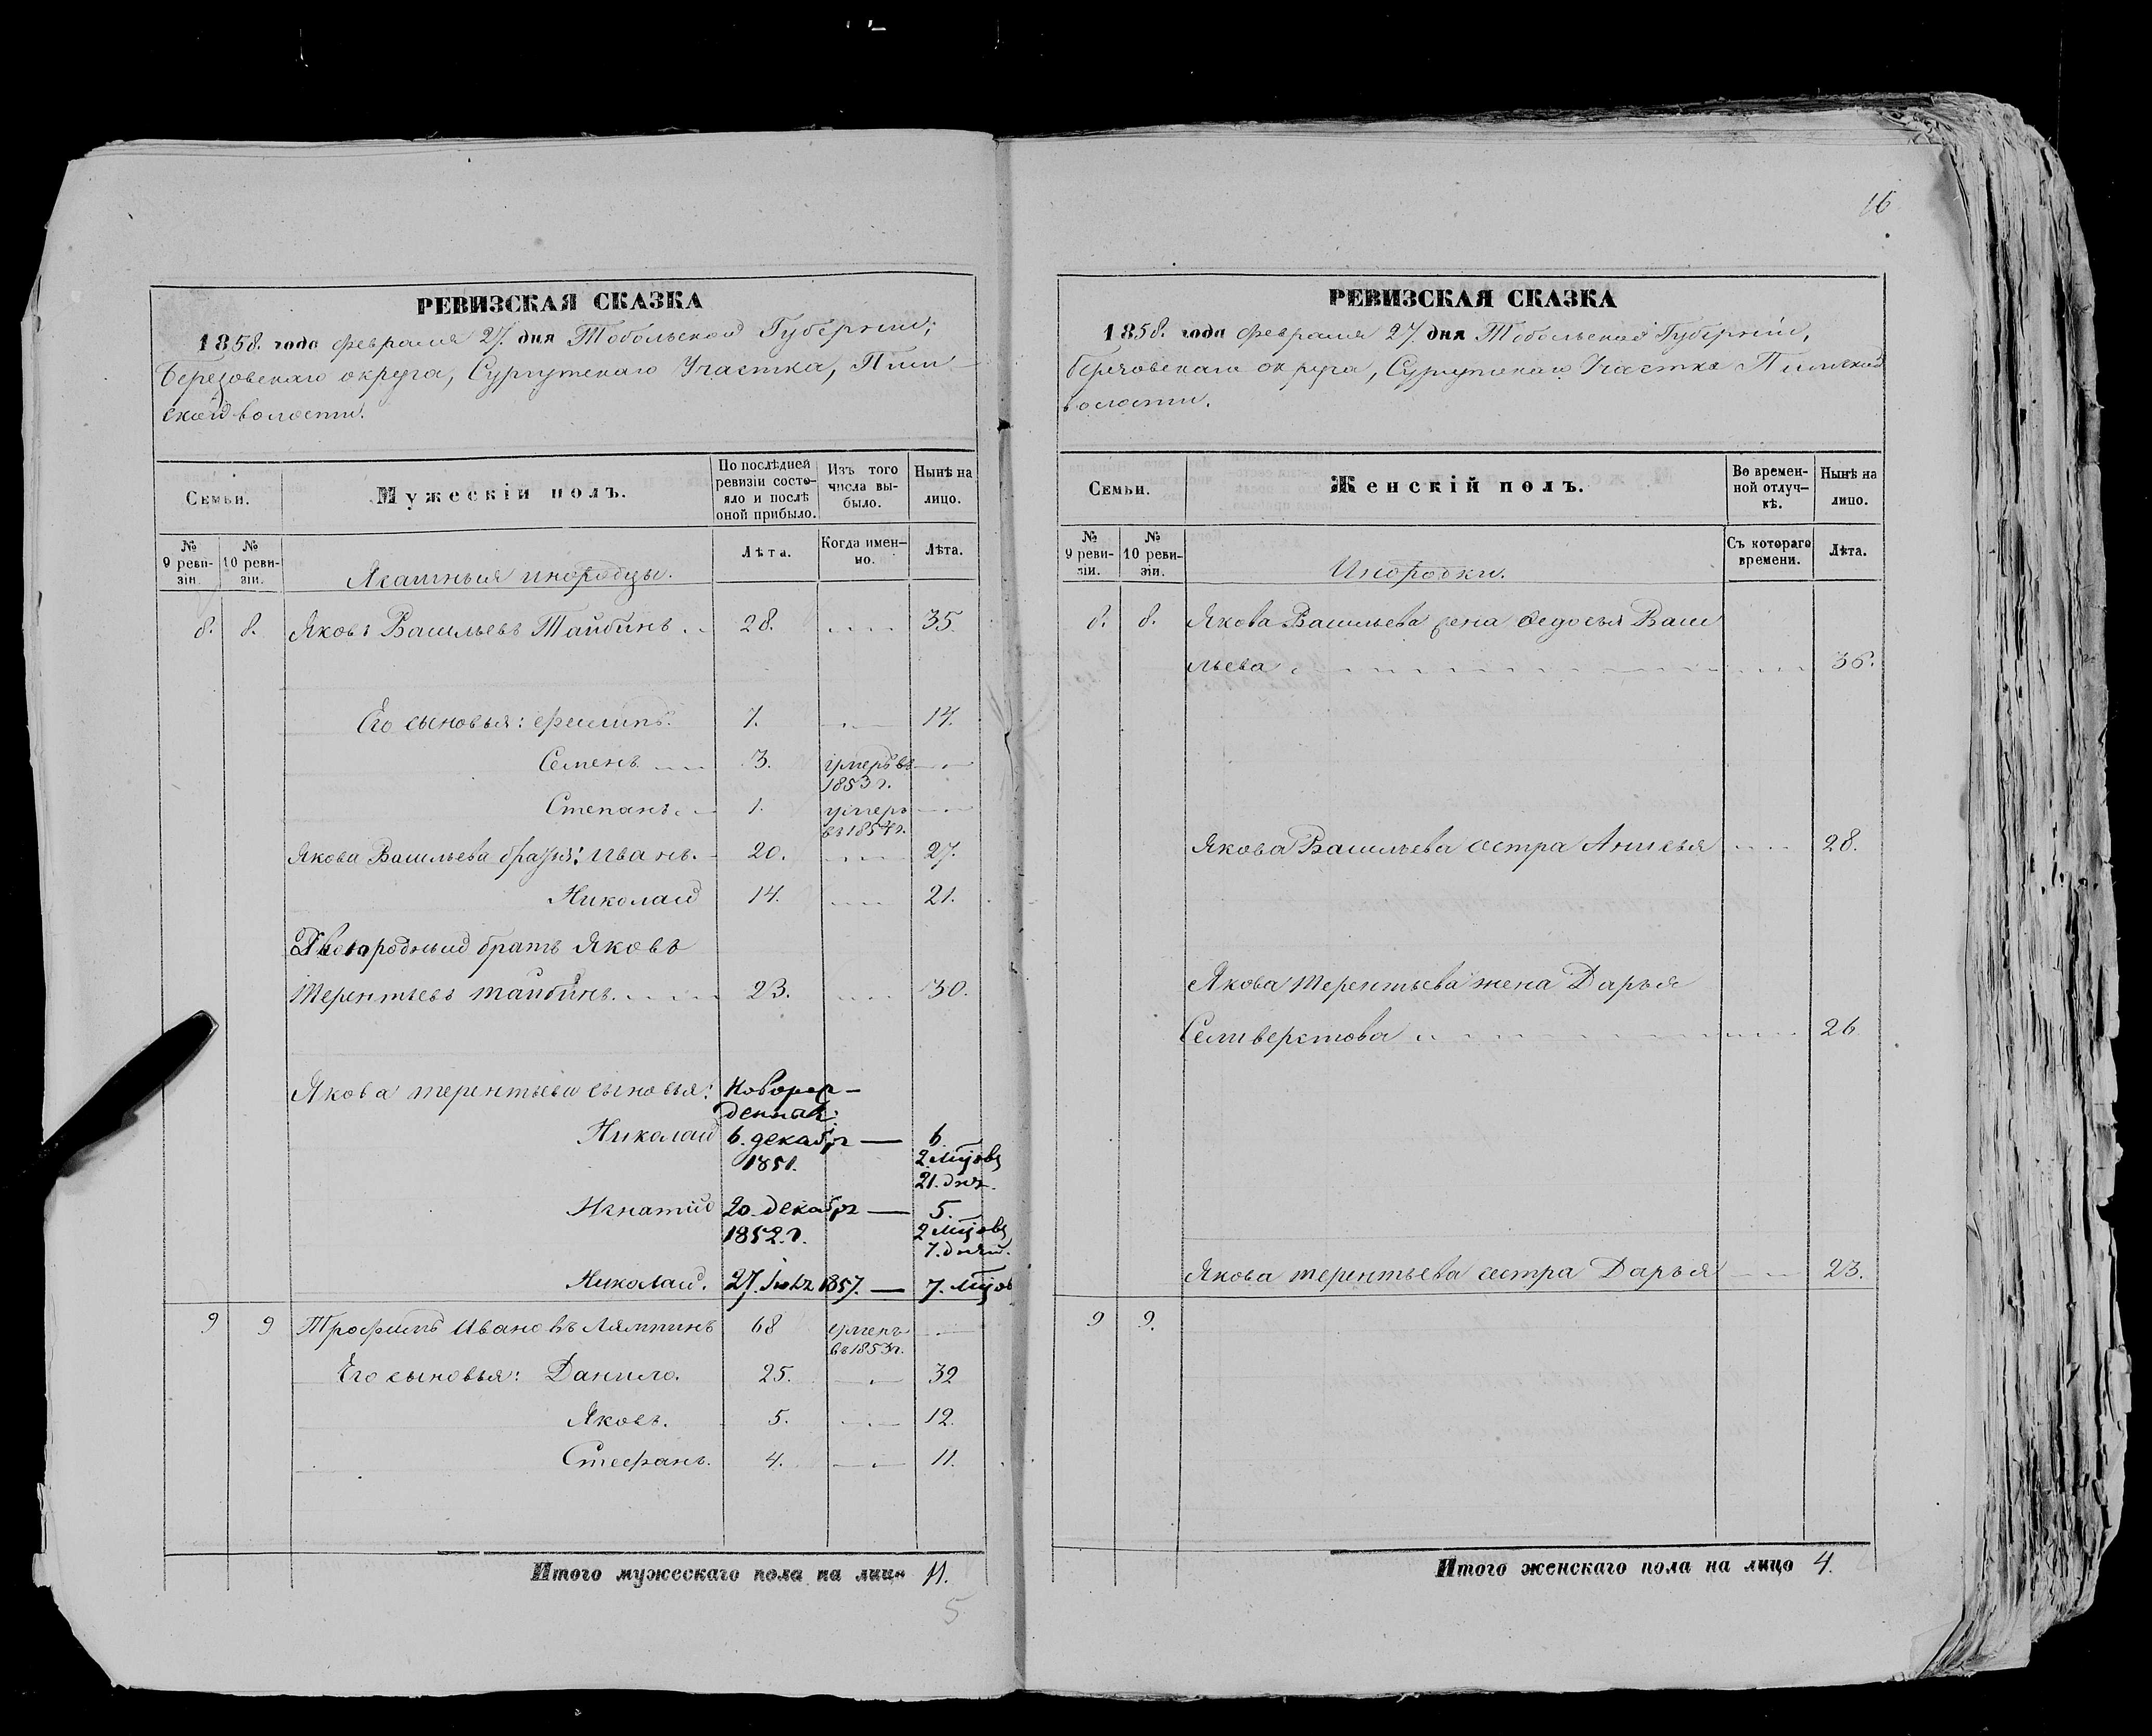 16
РЕВИЗСКАЯ СКАЗКА
1858. года февраля 27. дня Тобольской Губерніи,
Березовскаго округа, Сургутскаго Участка, Пим-
ской волости.
Семьи.
Мужескій полъ.
По послѣдней ревизіи состояло и послѣ оной прибыло.
Изъ того числа выбыло.
Нынѣ на лицо.
№ 9 ревизіи.
№ 10 ревизіи.
Ясашныя инородцы.
Лѣта.
Когда именно.
Лѣта.
8. 8. Яковъ Васильевъ Тайбинъ. 28. 35.
Его сыновья: Филипъ. 7. 14.
Семенъ 3. умеръ въ
1853 г.
Степанъ. 1. умеръ
въ 1854 г.
Якова Васильева братья: Иванъ. 20. 27.
Николай 14. 21.
Двоюродный братъ Яковъ
Терентьевъ Тайбинъ. 23. 30.
Якова Терентьева сыновья: Новорож-
денные:
Николай 6. декабр — 6.
1851. 2 Мцовъ
21. дня.
Игнатій 20. декабр — 5.
1852. г. 2 Мцовъ
7. дней.
Николай. 27. 1857. — 7. Мцов
9 9 Трофимъ Ивановъ Лямпинъ 68 умеръ
въ 1853 г.
Его сыновья: Данило. 25. 32
Яковъ. 5. 12.
Стефанъ. 4. 11.
Итого мужескаго пола на лицо 11.
5
РЕВИЗСКАЯ СКАЗКА
1858. года февраля 27. дня Тобольской Губерніи,
Березовскаго округа, Сургутскаго Участка Пимской
волости.
Семьи.
Женскій полъ.
Во временной отлучкѣ.
Нынѣ на лицо.
№ 9 ревизіи.
№ 10 ревизіи.
Инородки.
Съ котораго времени.
Лѣта.
8. 8. Якова Васильева жена Федосья Васи
льева 36.
Якова Васильева сестра Анисья 28.
Якова Терентьева жена Дарья
Селиверстова 26
Якова Терентьева сестра Дарья 23.
9 9.
Итого женскаго пола на лицо 4.